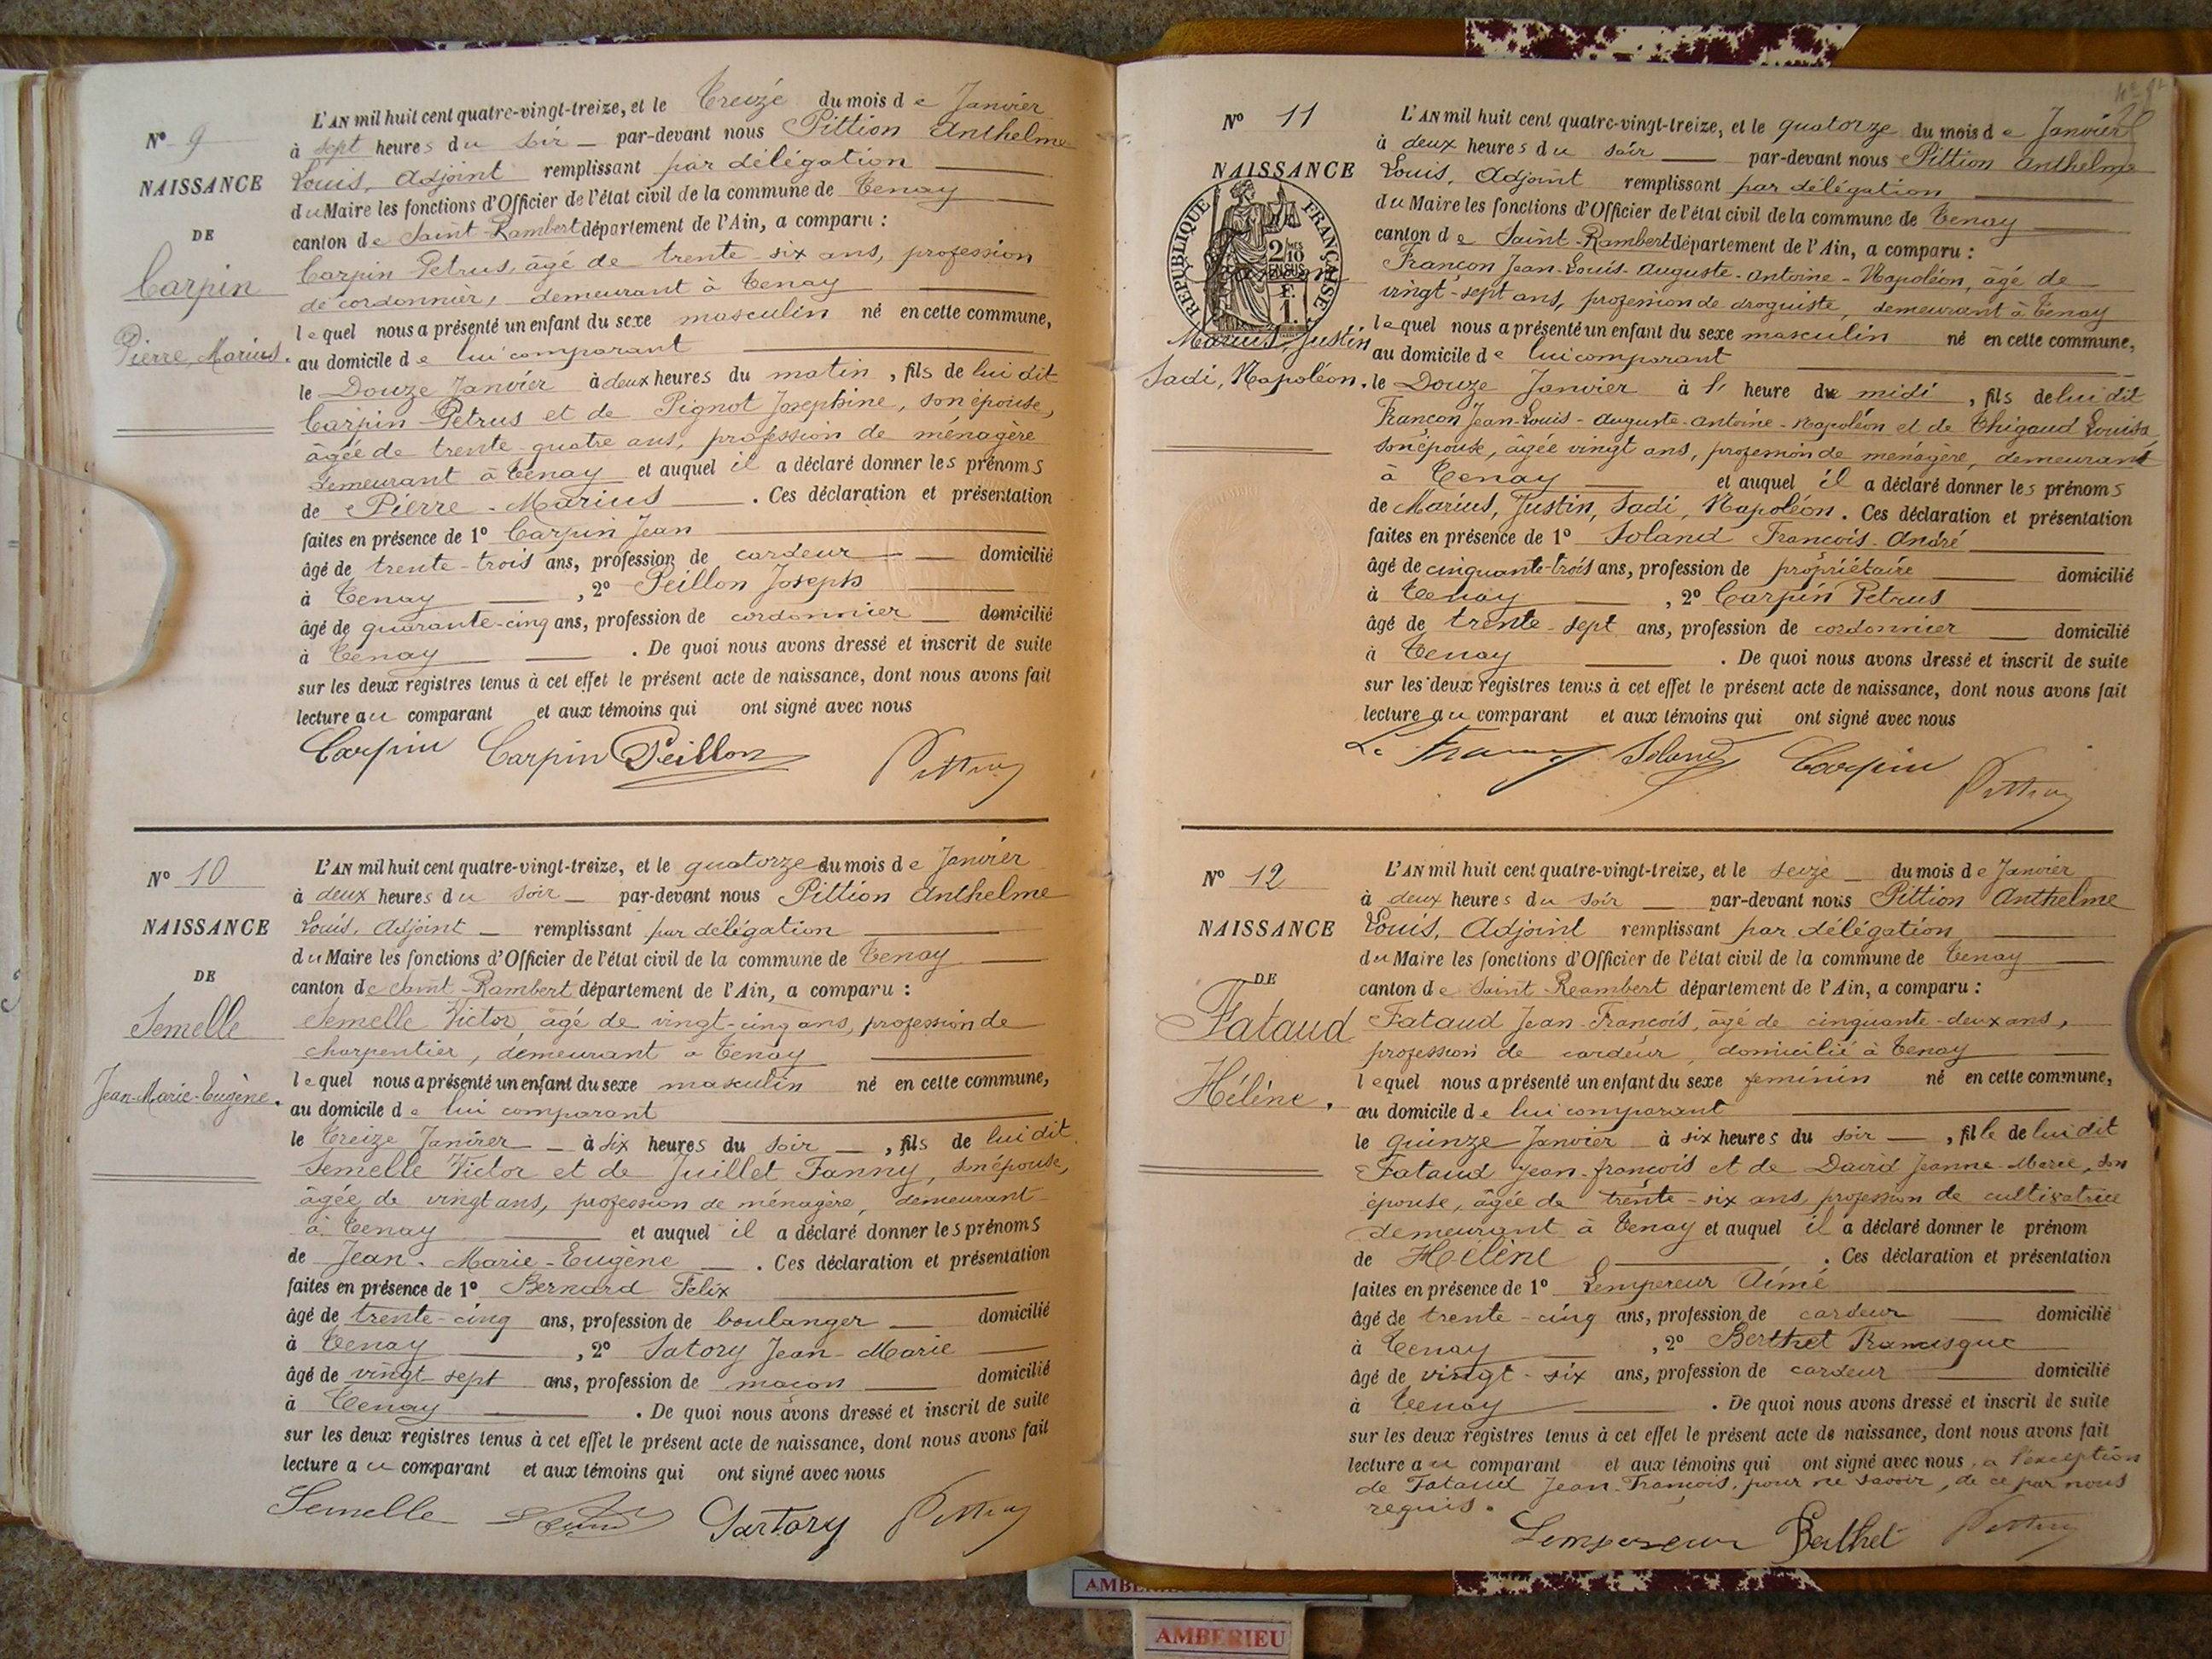 N° 9
NAISSANCE
DE
Carpin
Pierre, Marius.
L'AN mil huit cent quatre-vingt-treize, et le Treize du mois de Janvier
à sept heures du soir par-devant nous Pittion Anthelme
Louis, Adjoint remplissant par délégation
du Maire les fonctions d'Officier de l'état civil de la commune de Tenay
canton de Saint-Rambert département de l'Ain, a comparu :
Carpin Petrus, âgé de trente-six ans, profession
de cordonnier, demeurant à Tenay
lequel nous a présenté un enfant du sexe masculin né en cette commune,
au domicile de lui comparant
le Douze Janvier à deux heures du matin, fils de lui dit
Carpin Petrus et de Pignot Josephine, son épouse,
âgée de trente-quatre ans, profession de ménagère
demeurant à Tenay et auquel il a déclaré donner les prénoms
de Pierre-Marius. Ces déclaration et présentation
faites en présence de 1° Carpin Jean
âgé de trente-trois ans, profession de cardeur domicilié
à Tenay, 2° Peillon Joseph
âgé de quarante-cinq ans, profession de cordonnier domicilié
à Tenay. De quoi nous avons dressé et inscrit de suite
sur les deux registres tenus à cet effet le présent acte de naissance, dont nous avons fait
lecture au comparant et aux témoins qui ont signé avec nous
Carpin Carpin Peillon Pittion
N° 10
NAISSANCE
DE
Semelle
Jean-Marie-Eugène.
L'AN mil huit cent quatre-vingt-treize, et le quatorze du mois de Janvier
à deux heures du soir par-devant nous Pittion Anthelme
Louis, Adjoint remplissant par délégation
du Maire les fonctions d'Officier de l'état civil de la commune de Tenay
canton de Saint-Rambert département de l'Ain, a comparu :
Semelle Victor, âgé de vingt-cinq ans, profession de
charpentier, demeurant à Tenay
lequel nous a présenté un enfant du sexe masculin né en cette commune,
au domicile de lui comparant
le Treize Janvier à six heures du soir, fils de lui dit
Semelle Victor et de Juillet Fanny, son épouse,
âgée de vingt ans, profession de ménagère, demeurant
à Tenay et auquel il a déclaré donner les prénoms
de Jean-Marie-Eugène. Ces déclaration et présentation
faites en présence de 1° Bernard Félix
âgé de trente-cinq ans, profession de boulanger domicilié
à Tenay, 2° Satory Jean-Marie
âgé de vingt sept ans, profession de maçon domicilié
à Tenay. De quoi nous avons dressé et inscrit de suite
sur les deux registres tenus à cet effet le présent acte de naissance, dont nous avons fait
lecture au comparant et aux témoins qui ont signé avec nous
Semelle Sartory Pittion
N° 11
NAISSANCE
RÉPUBLIQUE FRANÇAISE
2/10 EN SUS
1 F.
Marius, Justin
Sadi, Napoléon.
L'AN mil huit cent quatre-vingt-treize, et le quatorze du mois de Janvier
à deux heures du soir par-devant nous Pittion Anthelme
Louis, Adjoint remplissant par délégation
du Maire les fonctions d'Officier de l'état civil de la commune de Tenay
canton de Saint-Rambert département de l'Ain, a comparu :
Françon Jean-Louis-Auguste-Antoine-Napoléon, âgé de
vingt-sept ans, profession de droguiste, demeurant à Tenay
lequel nous a présenté un enfant du sexe masculin né en cette commune,
au domicile de lui comparant
le Douze Janvier à l' heure de midi, fils de lui dit
Françon Jean-Louis-Auguste-Antoine-Napoléon et de Thigaud Louisa,
son épouse, âgée vingt ans, profession de ménagère, demeurant
à Tenay et auquel il a déclaré donner les prénoms
de Marius, Justin, Sadi, Napoléon. Ces déclaration et présentation
faites en présence de 1° Soland François-André
âgé de cinquante-trois ans, profession de propriétaire domicilié
à Tenay, 2° Carpin Petrus
âgé de trente-sept ans, profession de cordonnier domicilié
à Tenay. De quoi nous avons dressé et inscrit de suite
sur les deux registres tenus à cet effet le présent acte de naissance, dont nous avons fait
lecture au comparant et aux témoins qui ont signé avec nous
Soland Carpin Pittion
N° 12
NAISSANCE
DE
Fataud
Hélène.
L'AN mil huit cent quatre-vingt-treize, et le seize du mois de Janvier
à deux heures du soir par-devant nous Pittion Anthelme
Louis, Adjoint remplissant par délégation
du Maire les fonctions d'Officier de l'état civil de la commune de Tenay
canton de Saint-Rambert département de l'Ain, a comparu :
Fataud Jean-François, âgé de cinquante-deux ans,
profession de cardeur, domicilié à Tenay
lequel nous a présenté un enfant du sexe féminin né en cette commune,
au domicile de lui comparant
le quinze Janvier à six heures du soir, fille de lui dit
Fataud Jean-François et de David Jeanne-Marie, son
épouse, âgée de trente-six ans, profession de cultivatrice
demeurant à Tenay et auquel il a déclaré donner le prénom
de Hélène. Ces déclaration et présentation
faites en présence de 1° Lempereur Aimé
âgé de trente-cinq ans, profession de cardeur domicilié
à Tenay, 2° Berthet Francisque
âgé de vingt-six ans, profession de cardeur domicilié
à Tenay. De quoi nous avons dressé et inscrit de suite
sur les deux registres tenus à cet effet le présent acte de naissance, dont nous avons fait
lecture au comparant et aux témoins qui ont signé avec nous, à l'exception
de Fataud Jean-François, pour ne savoir, de ce par nous
requis.
Lempereur Berthet Pittion
AMBERIEU